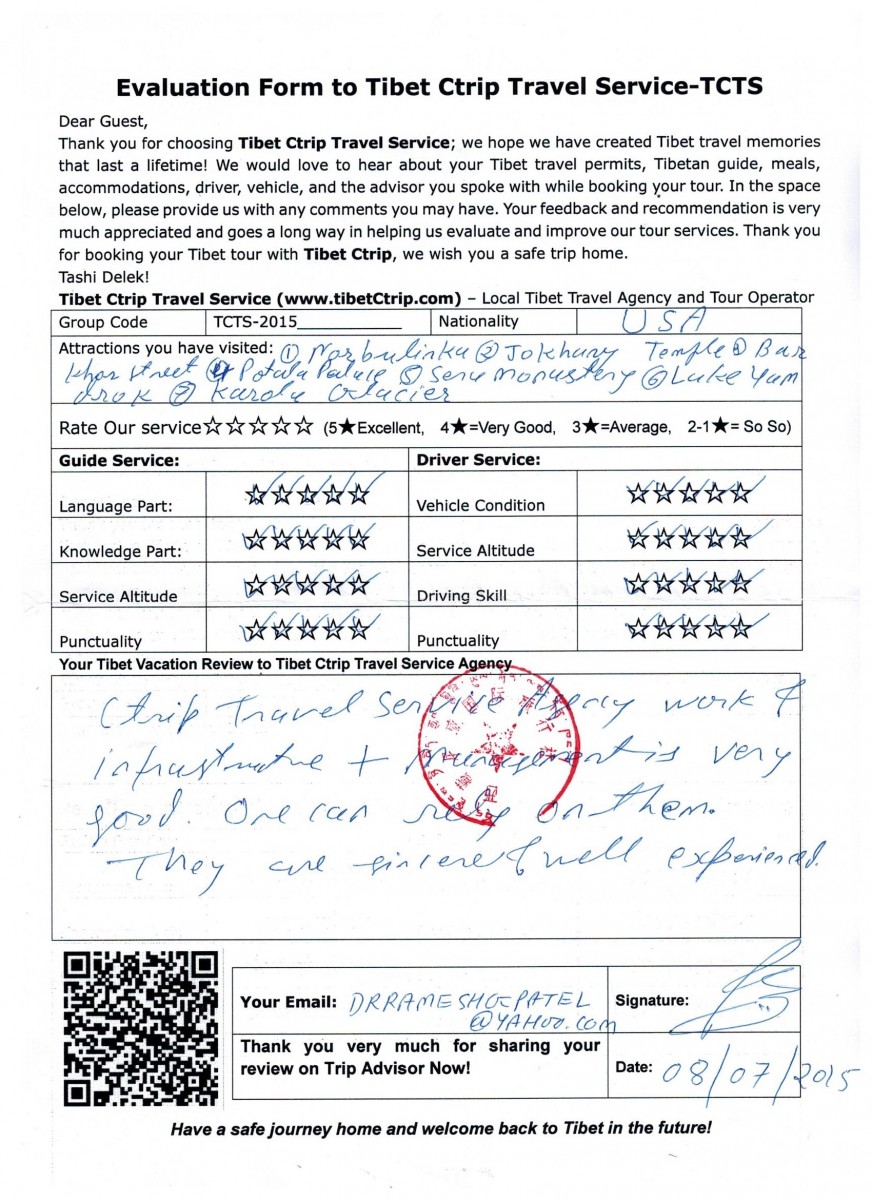 Evaluation Form to Tibet Ctrip Travel Service-TCTS
Dear Guest,
Thank you for choosing Tibet Ctrip Travel Service; we hope we have created Tibet travel memories
that last a lifetime! We would love to hear about your Tibet travel permits, Tibetan guide, meals,
accommodations, driver, vehicle, and the advisor you spoke with while booking your tour. In the space
below, please provide us with any comments you may have. Your feedback and recommendation is very
much appreciated and goes a long way in helping us evaluate and improve our tour services. Thank you
for booking your Tibet tour with Tibet Ctrip, we wish you a safe trip home.
Tashi Delek!
Tibet Ctrip Travel Service (www.tibetCtrip.com) – Local Tibet Travel Agency and Tour Operator
Group Code TCTS-2015____________ Nationality USA
Attractions you have visited: ① Norbulinka ② Jokhang Temple ③ Bar
khor street ④ Potala Palace ⑤ Sera monastery ⑥ Lake Yam
drok ⑦ Karola Glacier
Rate Our service☆☆☆☆☆ (5★Excellent, 4★=Very Good, 3★=Average, 2-1★= So So)
Guide Service: Driver Service:
Language Part: ☆☆☆☆☆ Vehicle Condition ☆☆☆☆☆
Knowledge Part: ☆☆☆☆☆ Service Altitude ☆☆☆☆☆
Service Altitude ☆☆☆☆☆ Driving Skill ☆☆☆☆☆
Punctuality ☆☆☆☆☆ Punctuality ☆☆☆☆☆
Your Tibet Vacation Review to Tibet Ctrip Travel Service Agency
Ctrip Travel Service Agency work &
infrastructure + management is very
good. One can rely on them.
They are sincere & well experienced.
Your Email: DRRAMESHCPATEL
@YAHOO.COM
Signature:
Thank you very much for sharing your
review on Trip Advisor Now!
Date: 08/07/2015
Have a safe journey home and welcome back to Tibet in the future!